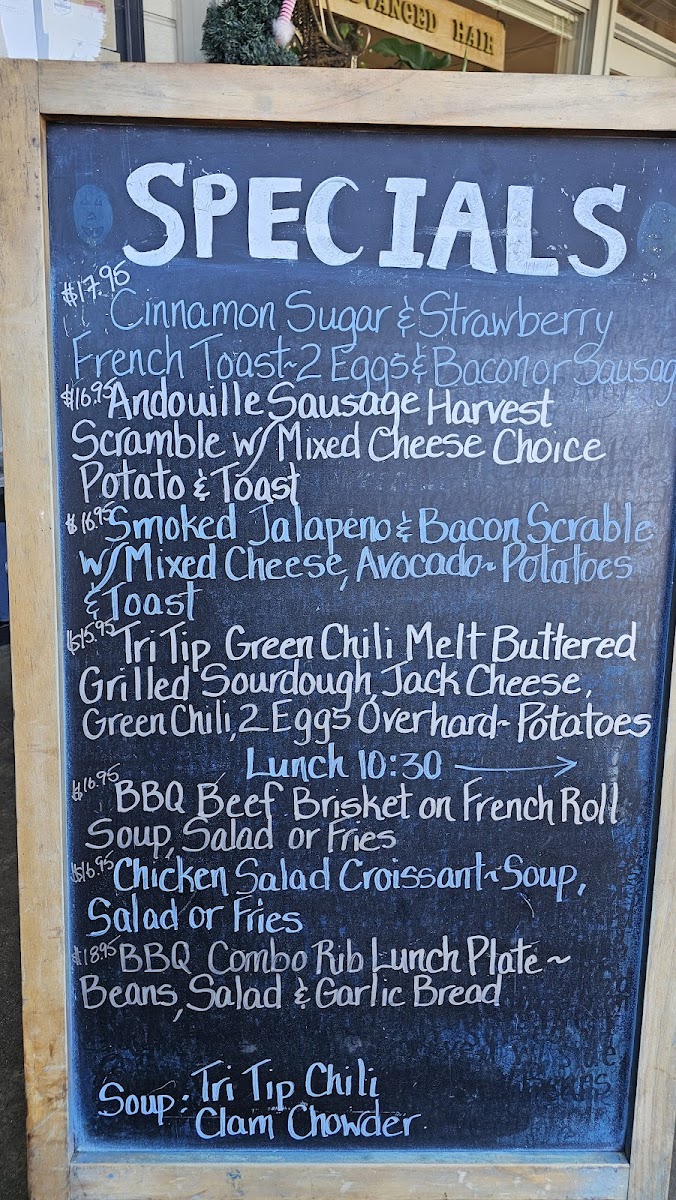 ADVANCED HAIR
SPECIALS
$17.95
Cinnamon Sugar & Strawberry
French Toast~2 Eggs & Bacon or Sausag
$16.95 Andouille Sausage Harvest
Scramble w/ Mixed Cheese Choice
Potato & Toast
$16.95 Smoked Jalapeno & Bacon Scrable
w/ Mixed Cheese, Avocado~Potatoes
& Toast
$15.95 Tri Tip Green Chili Melt Buttered
Grilled Sourdough, Jack Cheese,
Green Chili, 2 Eggs Overhard~Potatoes
Lunch 10:30 →
$16.95 BBQ Beef Brisket on French Roll
Soup, Salad or Fries
$16.95 Chicken Salad Croissant~Soup,
Salad or Fries
$18.95 BBQ Combo Rib Lunch Plate~
Beans, Salad & Garlic Bread
Soup: Tri Tip Chili
Clam Chowder